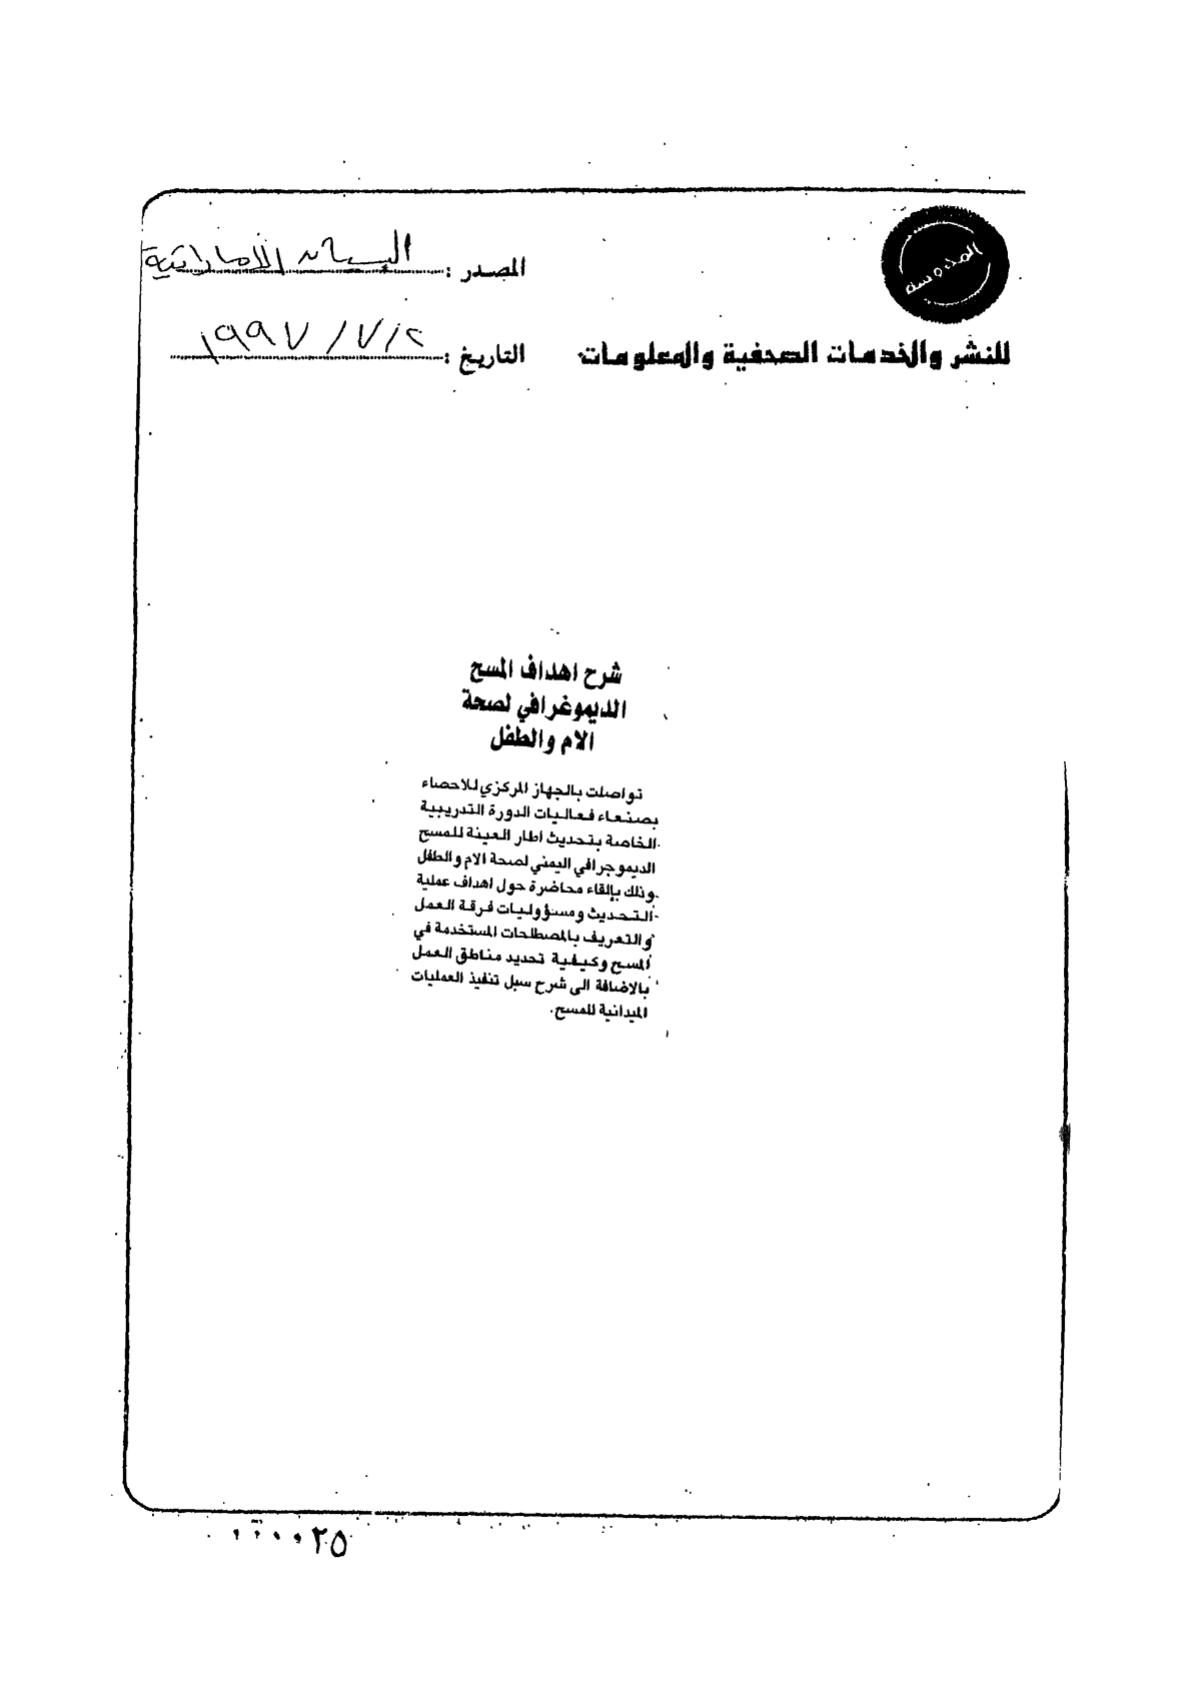 المصدر : البيان الإماراتية
للنشر والخدمات الصحفية والمعلومات
التاريخ : ١٩٩٧/٧/٢
شرح اهداف المسح
الديموغرافي لصحة
الام والطفل
تواصلت بالجهاز المركزي للاحصاء
بصنعاء فعاليات الدورة التدريبية
الخاصة بتحديث اطار العينة للمسح
الديموجرافي اليمني لصحة الام والطفل
وذلك بإلقاء محاضرة حول اهداف عملية
التحديث ومسؤوليات فرقة العمل
والتعريف بالمصطلحات المستخدمة في
المسح وكيفية تحديد مناطق العمل
بالاضافة الى شرح سبل تنفيذ العمليات
الميدانية للمسح.